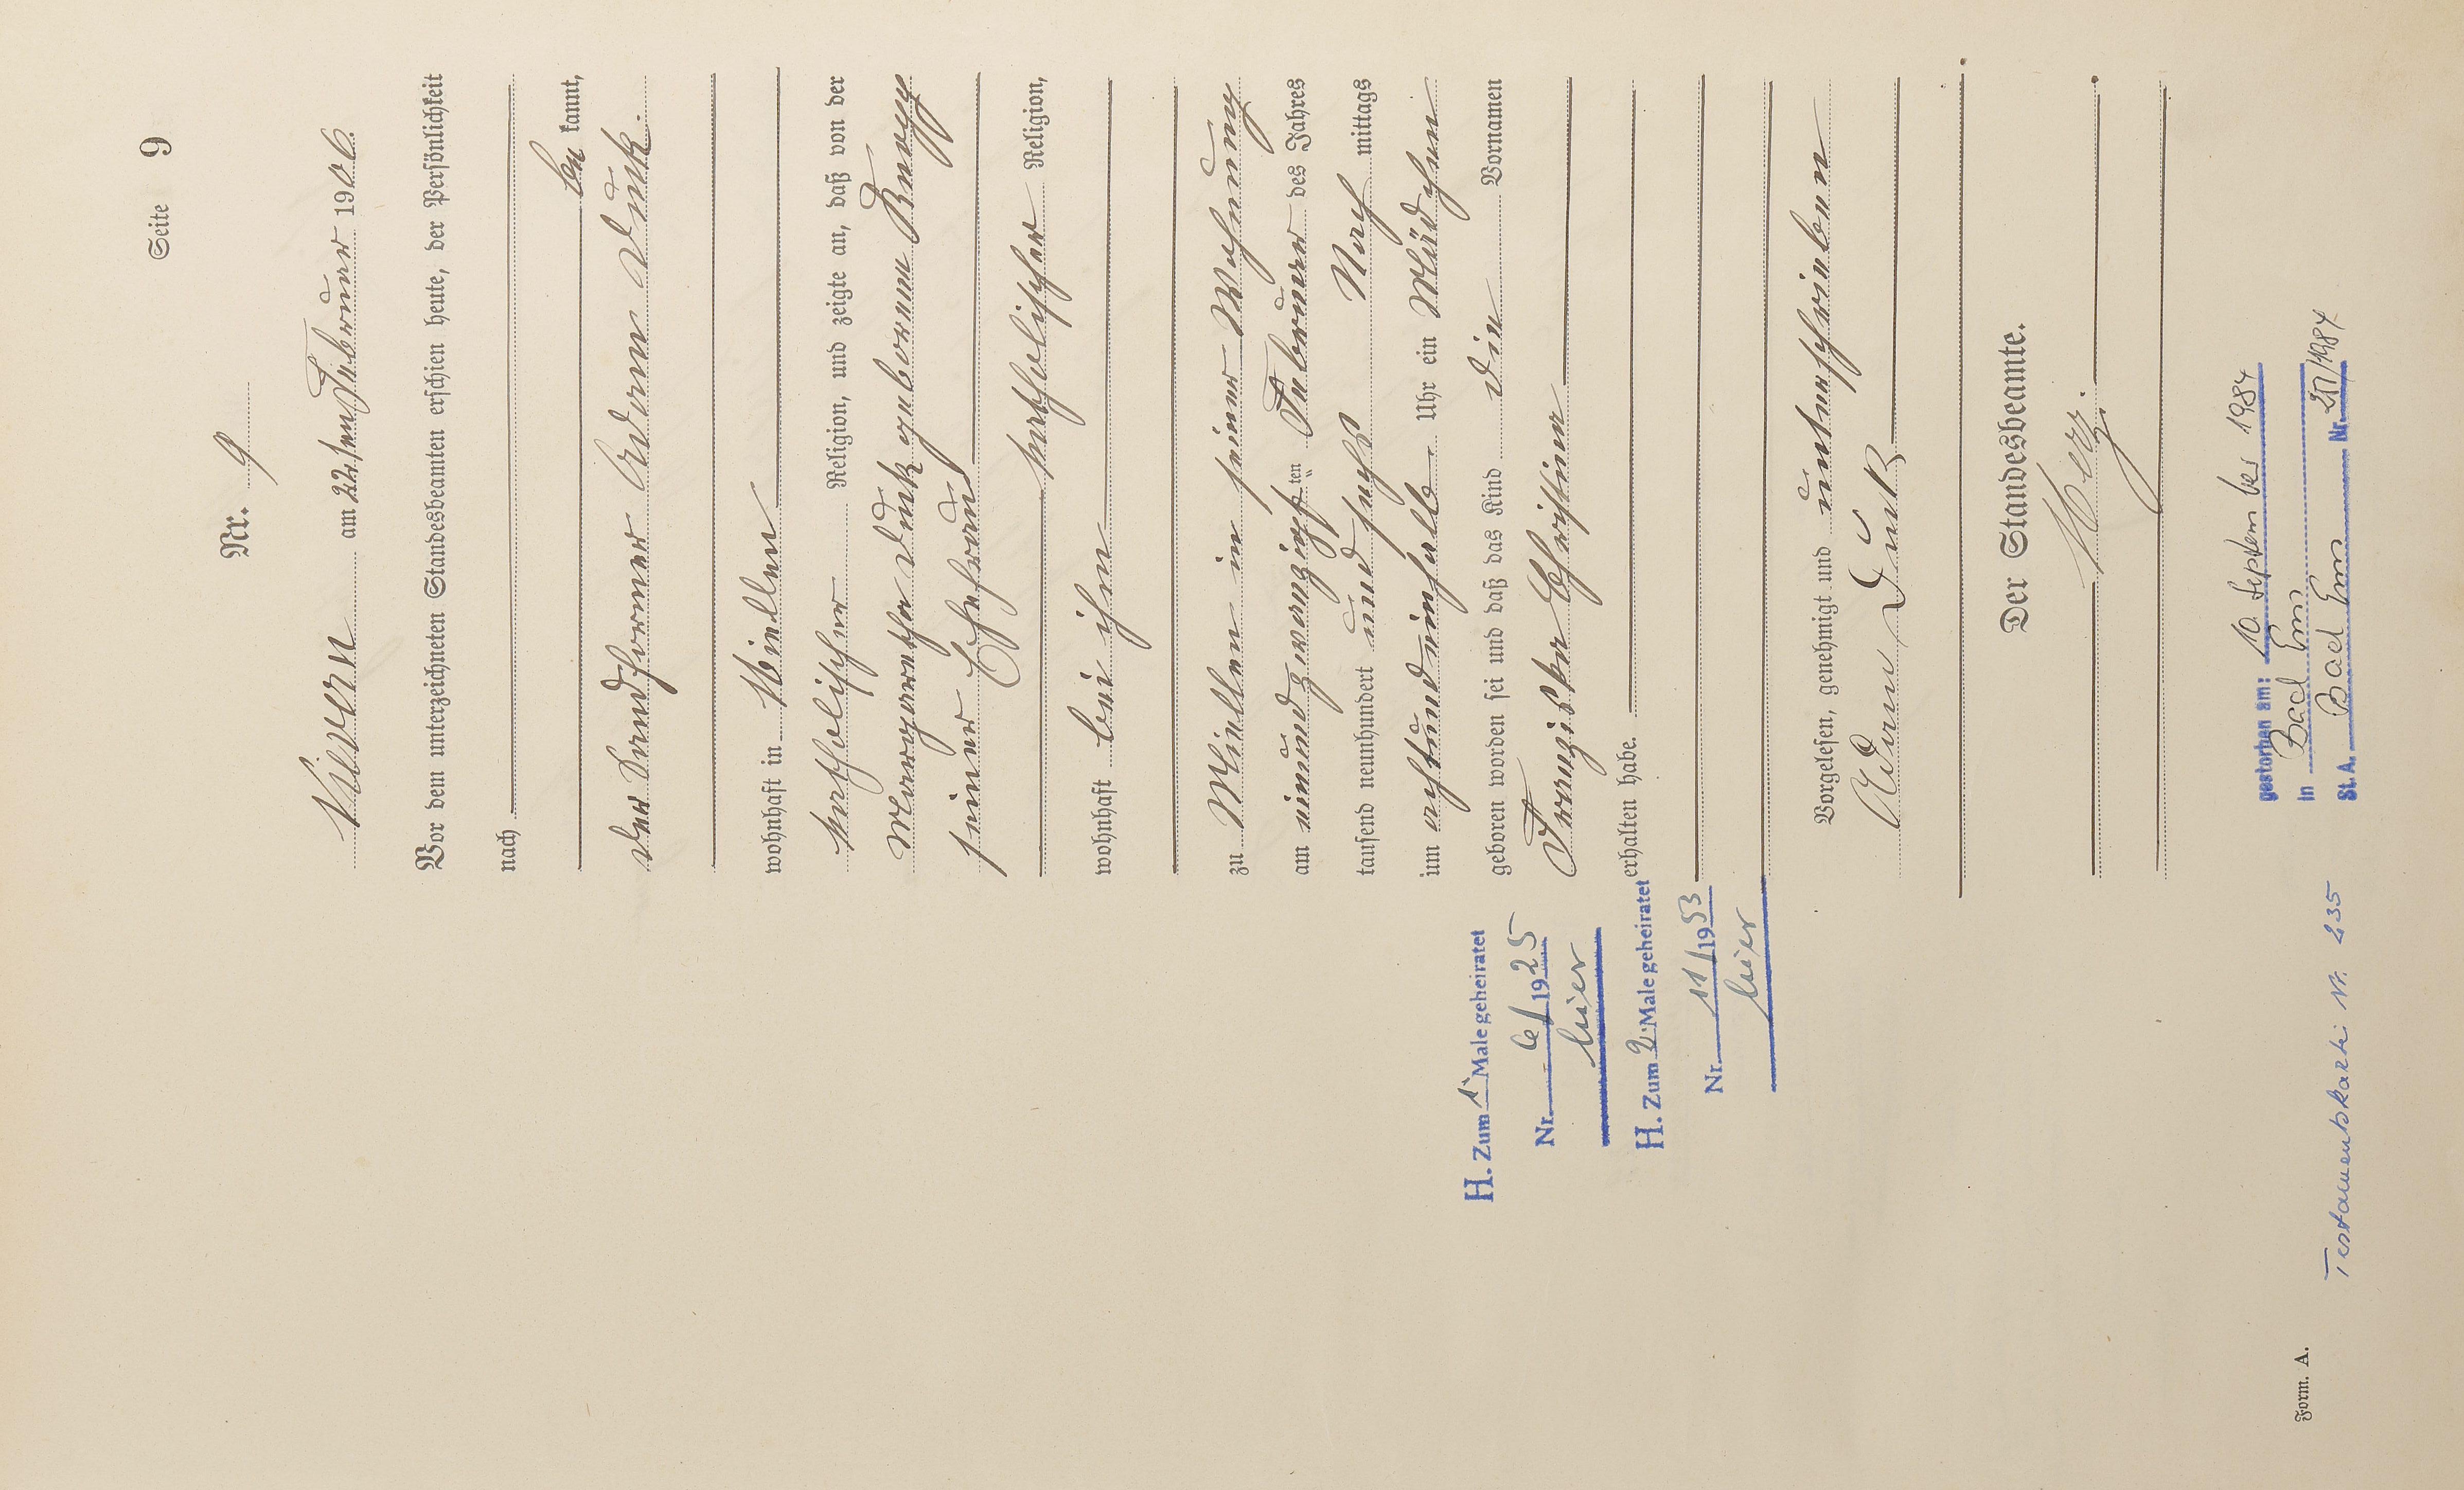 Seite 9
Nr. 9
Nievern am 22ten Februar 1906.
Vor dem unterzeichneten Standesbeamten erschien heute, der Persönlichkeit
nach
be kannt,
der Sandformer Adam Dück.
wohnhaft in Miellen
katholischer Religion, und zeigte an, daß von der
Margaretha Dück geborenen Knopp
seiner Ehefrau
katholischer Religion,
wohnhaft bei ihm
zu Miellen in seiner Wohnung
am einundzwanzigsten Februar des Jahres
tausend neunhundert und sechs Nach mittags
um achtundeinhalb Uhr ein Mädchen
geboren worden sei und daß das Kind die Vornamen
Franziska Christina
erhalten habe.
Vorgelesen, genehmigt und unterschrieben
Adam Dück
Der Standesbeamte.
H. Zum 1. Male geheiratet
Nr. 6/1925
hier
H. Zum 2. Male geheiratet
Nr. 11/1953
hier
gestorben am: 10. September 1984
in Bad Ems
St. A. Bad Ems Nr. 251/1984
Testamentskartei Nr. 235
Form. A.